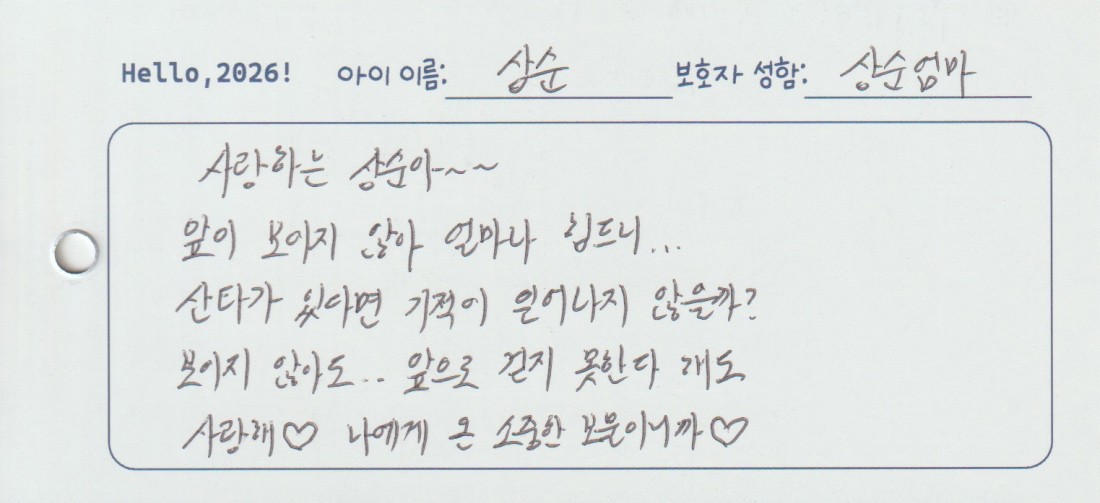 Hello,2026! 아이 이름: 상순 보호자 성함: 상순엄마
사랑하는 상순아~~
앞이 보이지 않아 얼마나 힘드니...
산타가 있다면 기적이 일어나지 않을까?
보이지 않아도.. 앞으로 걷지 못한다 해도
사랑해♡ 나에게 온 소중한 보물이니까♡